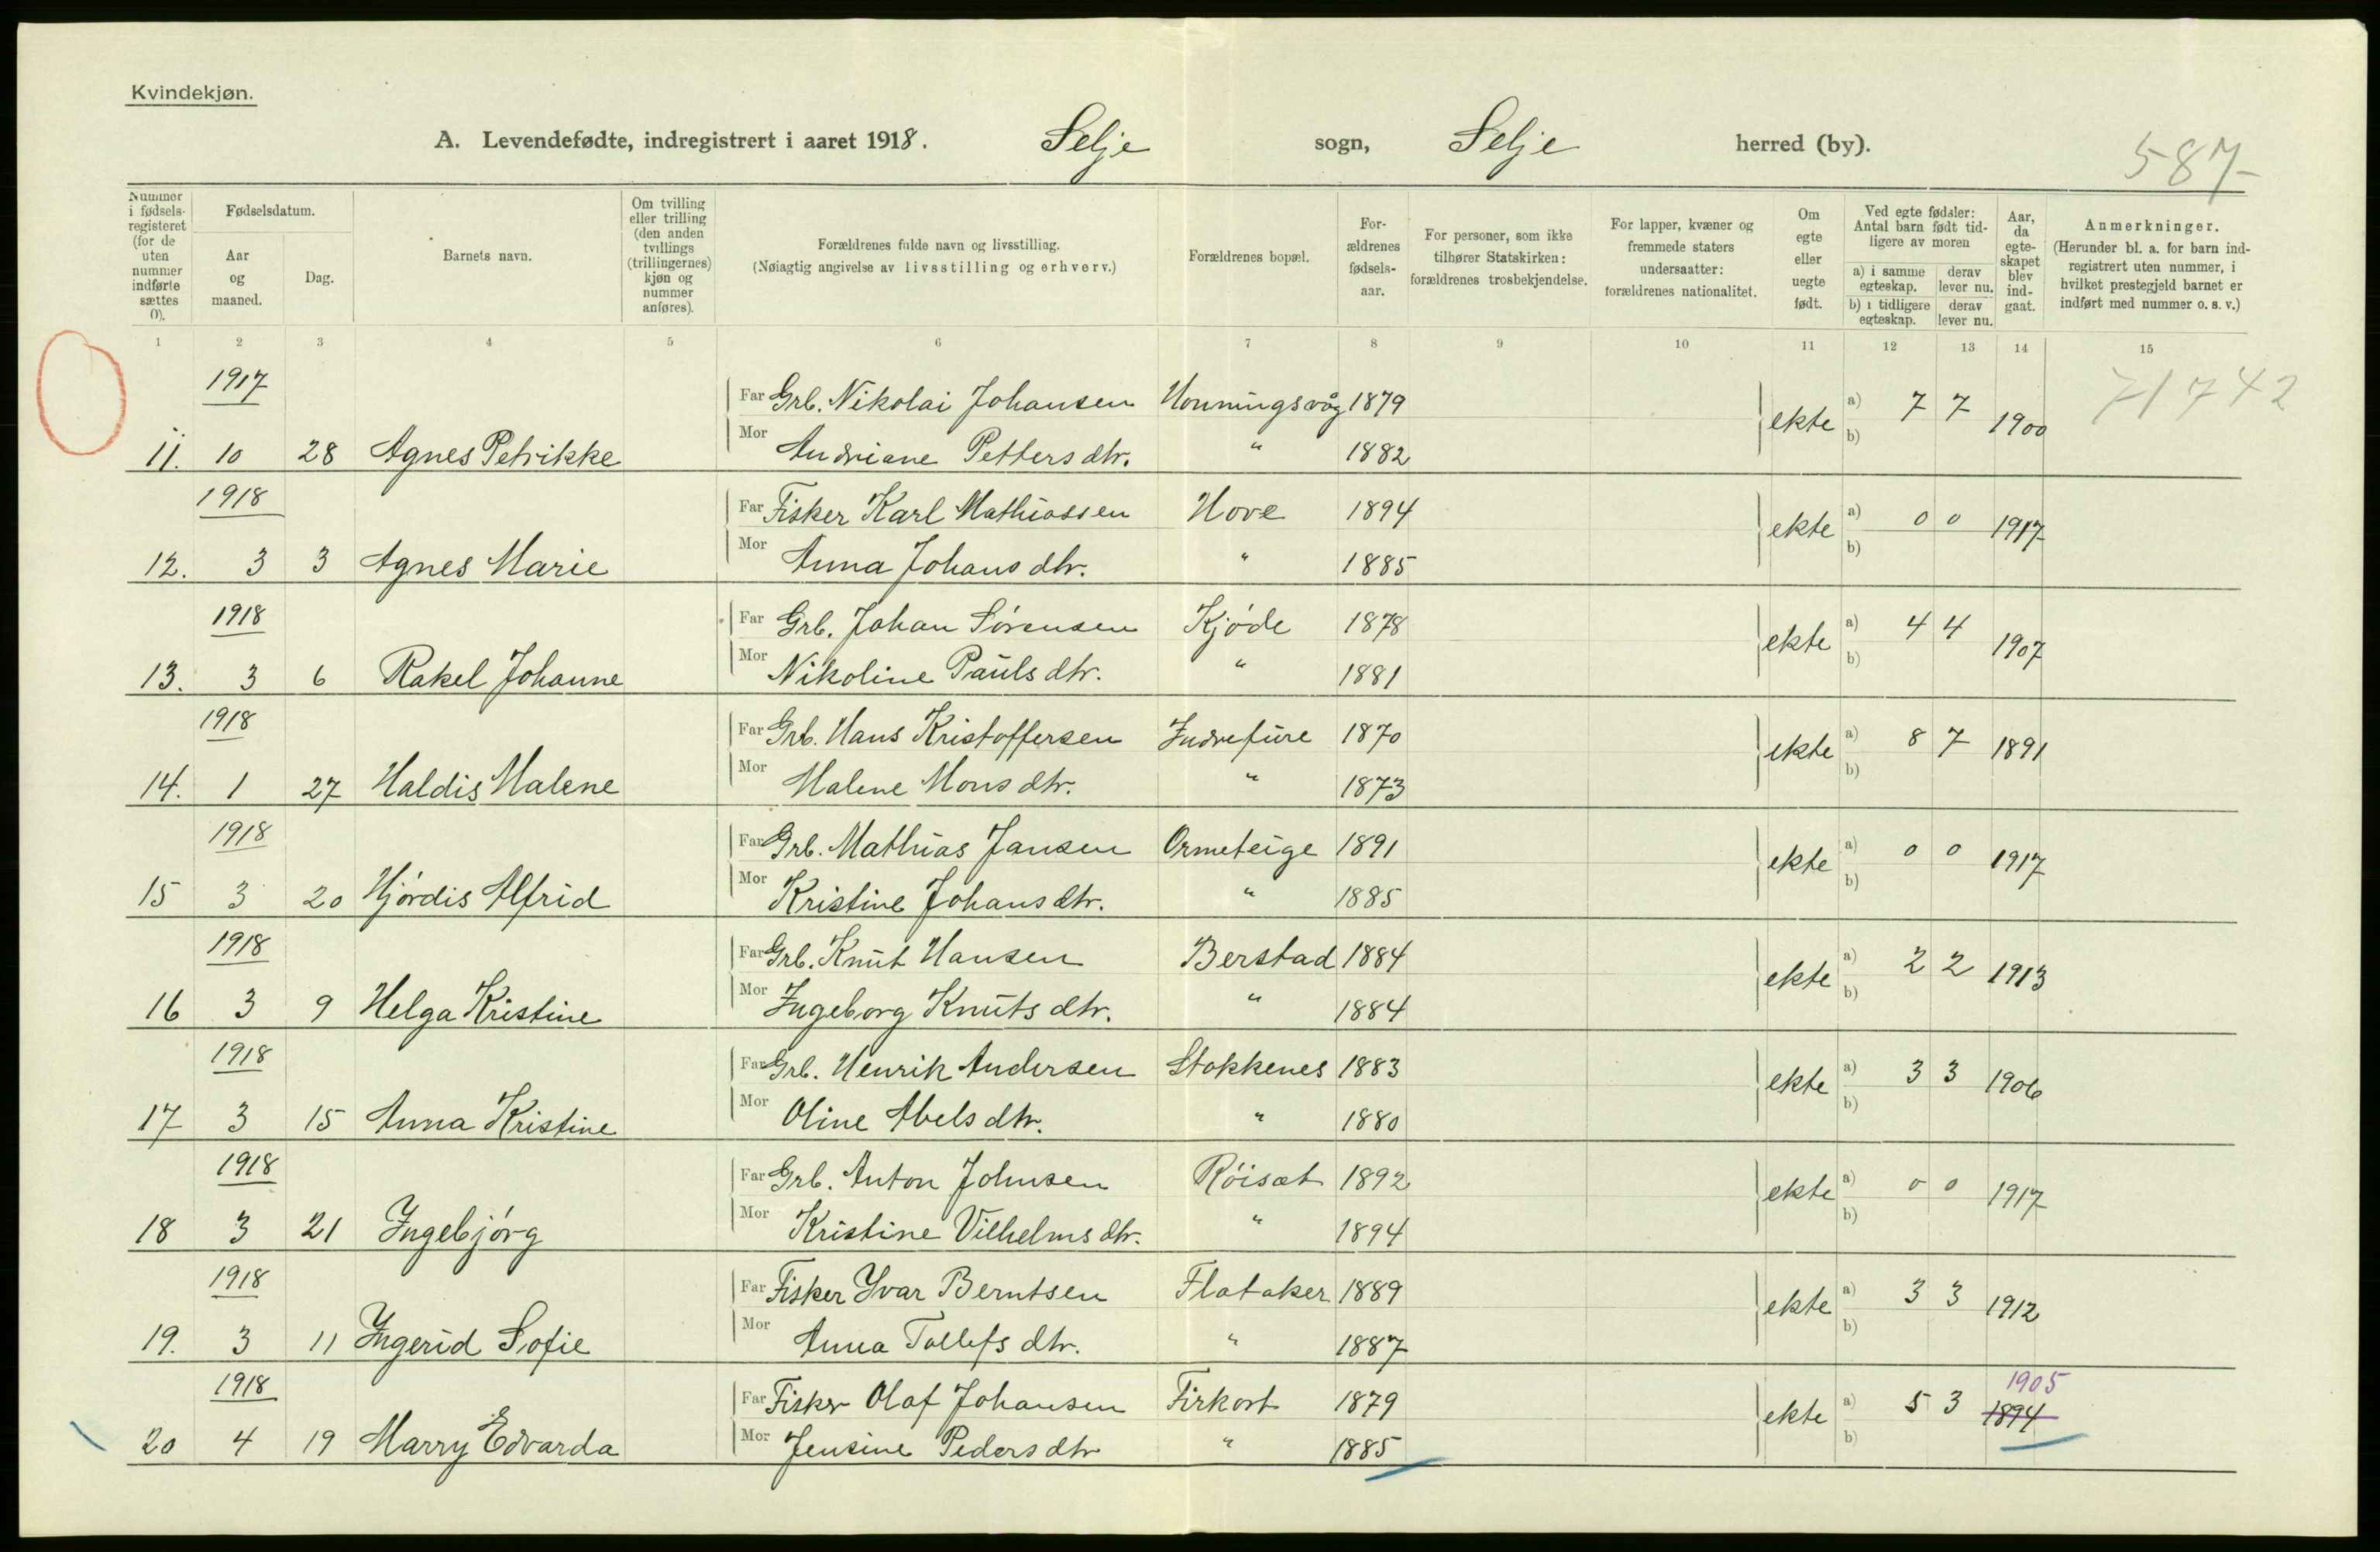 Kvindekjøn.
A. Levendefødte, indregistrert i aaret 1918. Selje sogn, Selje herred (by).
587
Nummer i fødsels-registeret (for de uten nummer indførte sættes 0).
Fødselsdatum.
Aar og maaned.
Dag.
Barnets navn.
Om tvilling eller trilling (den anden tvillings (trillingernes) kjøn og nummer anføres).
Forældrenes fulde navn og livsstilling.
(Nøiagtig angivelse av livsstilling og erhverv.)
Forældrenes bopæl.
For-ældrenes fødsels-aar.
For personer, som ikke tilhører Statskirken: forældrenes trosbekjendelse.
For lapper, kvæner og fremmede staters undersaatter: forældrenes nationalitet.
Om egte eller uegte født.
Ved egte fødsler: Antal barn født tid-ligere av moren
a) i samme egteskap. derav lever nu.
b) i tidligere egteskap. derav lever nu.
Aar, da egte-skapet blev ind-gaat.
Anmerkninger.
(Herunder bl. a. for barn ind-registrert uten nummer, i hvilket prestegjeld barnet er indført med nummer o. s. v.)
1 2 3 4 5 6 7 8 9 10 11 12 13 14 15
1917 Far Grb. Nikolai Johansen Honningsvåg 1879 ekte a) 7 7 1900 71742
11. 10 28 Agnes Petrikke Mor Andriane Pettersdtr. " 1882 b)
1918 Far Fisker Karl Mathiassen Hove 1894 ekte a) 0 0 1917
12. 3 3 Agnes Marie Mor Anna Johansdtr. " 1885 b)
1918 Far Grb. Johan Sørensen Kjøde 1878 ekte a) 4 4 1907
13. 3 6 Rakel Johanne Mor Nikoline Paulsdtr. " 1881 b)
1918 Far Grb. Hans Kristoffersen Indrefure 1870 ekte a) 8 7 1891
14. 1 27 Haldis Malene Mor Malene Monsdtr. " 1873 b)
1918 Far Grb. Mathias Jansen Ormeteige 1891 ekte a) 0 0 1917
15 3 20 Hjørdis Alfrid Mor Kristine Johansdtr. " 1885 b)
1918 Far Grb. Knut Hansen Berstad 1884 ekte a) 2 2 1913
16 3 9 Helga Kristine Mor Ingeborg Knutsdtr. " 1884 b)
1918 Far Grb. Henrik Andersen Stokkenes 1883 ekte a) 3 3 1906
17 3 15 Anna Kristine Mor Oline Abelsdtr. " 1880 b)
1918 Far Grb. Anton Johnsen Røisæt 1892 ekte a) 0 0 1917
18 3 21 Ingebjørg Mor Kristine Vilhelmsdtr. " 1894 b)
1918 Far Fisker Ivar Berntsen Flataker 1889 ekte a) 3 3 1912
19. 3 11 Ingerid Sofie Mor Anna Tollefsdtr. " 1887 b)
1918 Far Fisker Olaf Johansen 1879 ekte a) 5 3 1905 1894
20 4 19 Marry Edvarda Mor Jensine Pedersdtr " 1885 b)